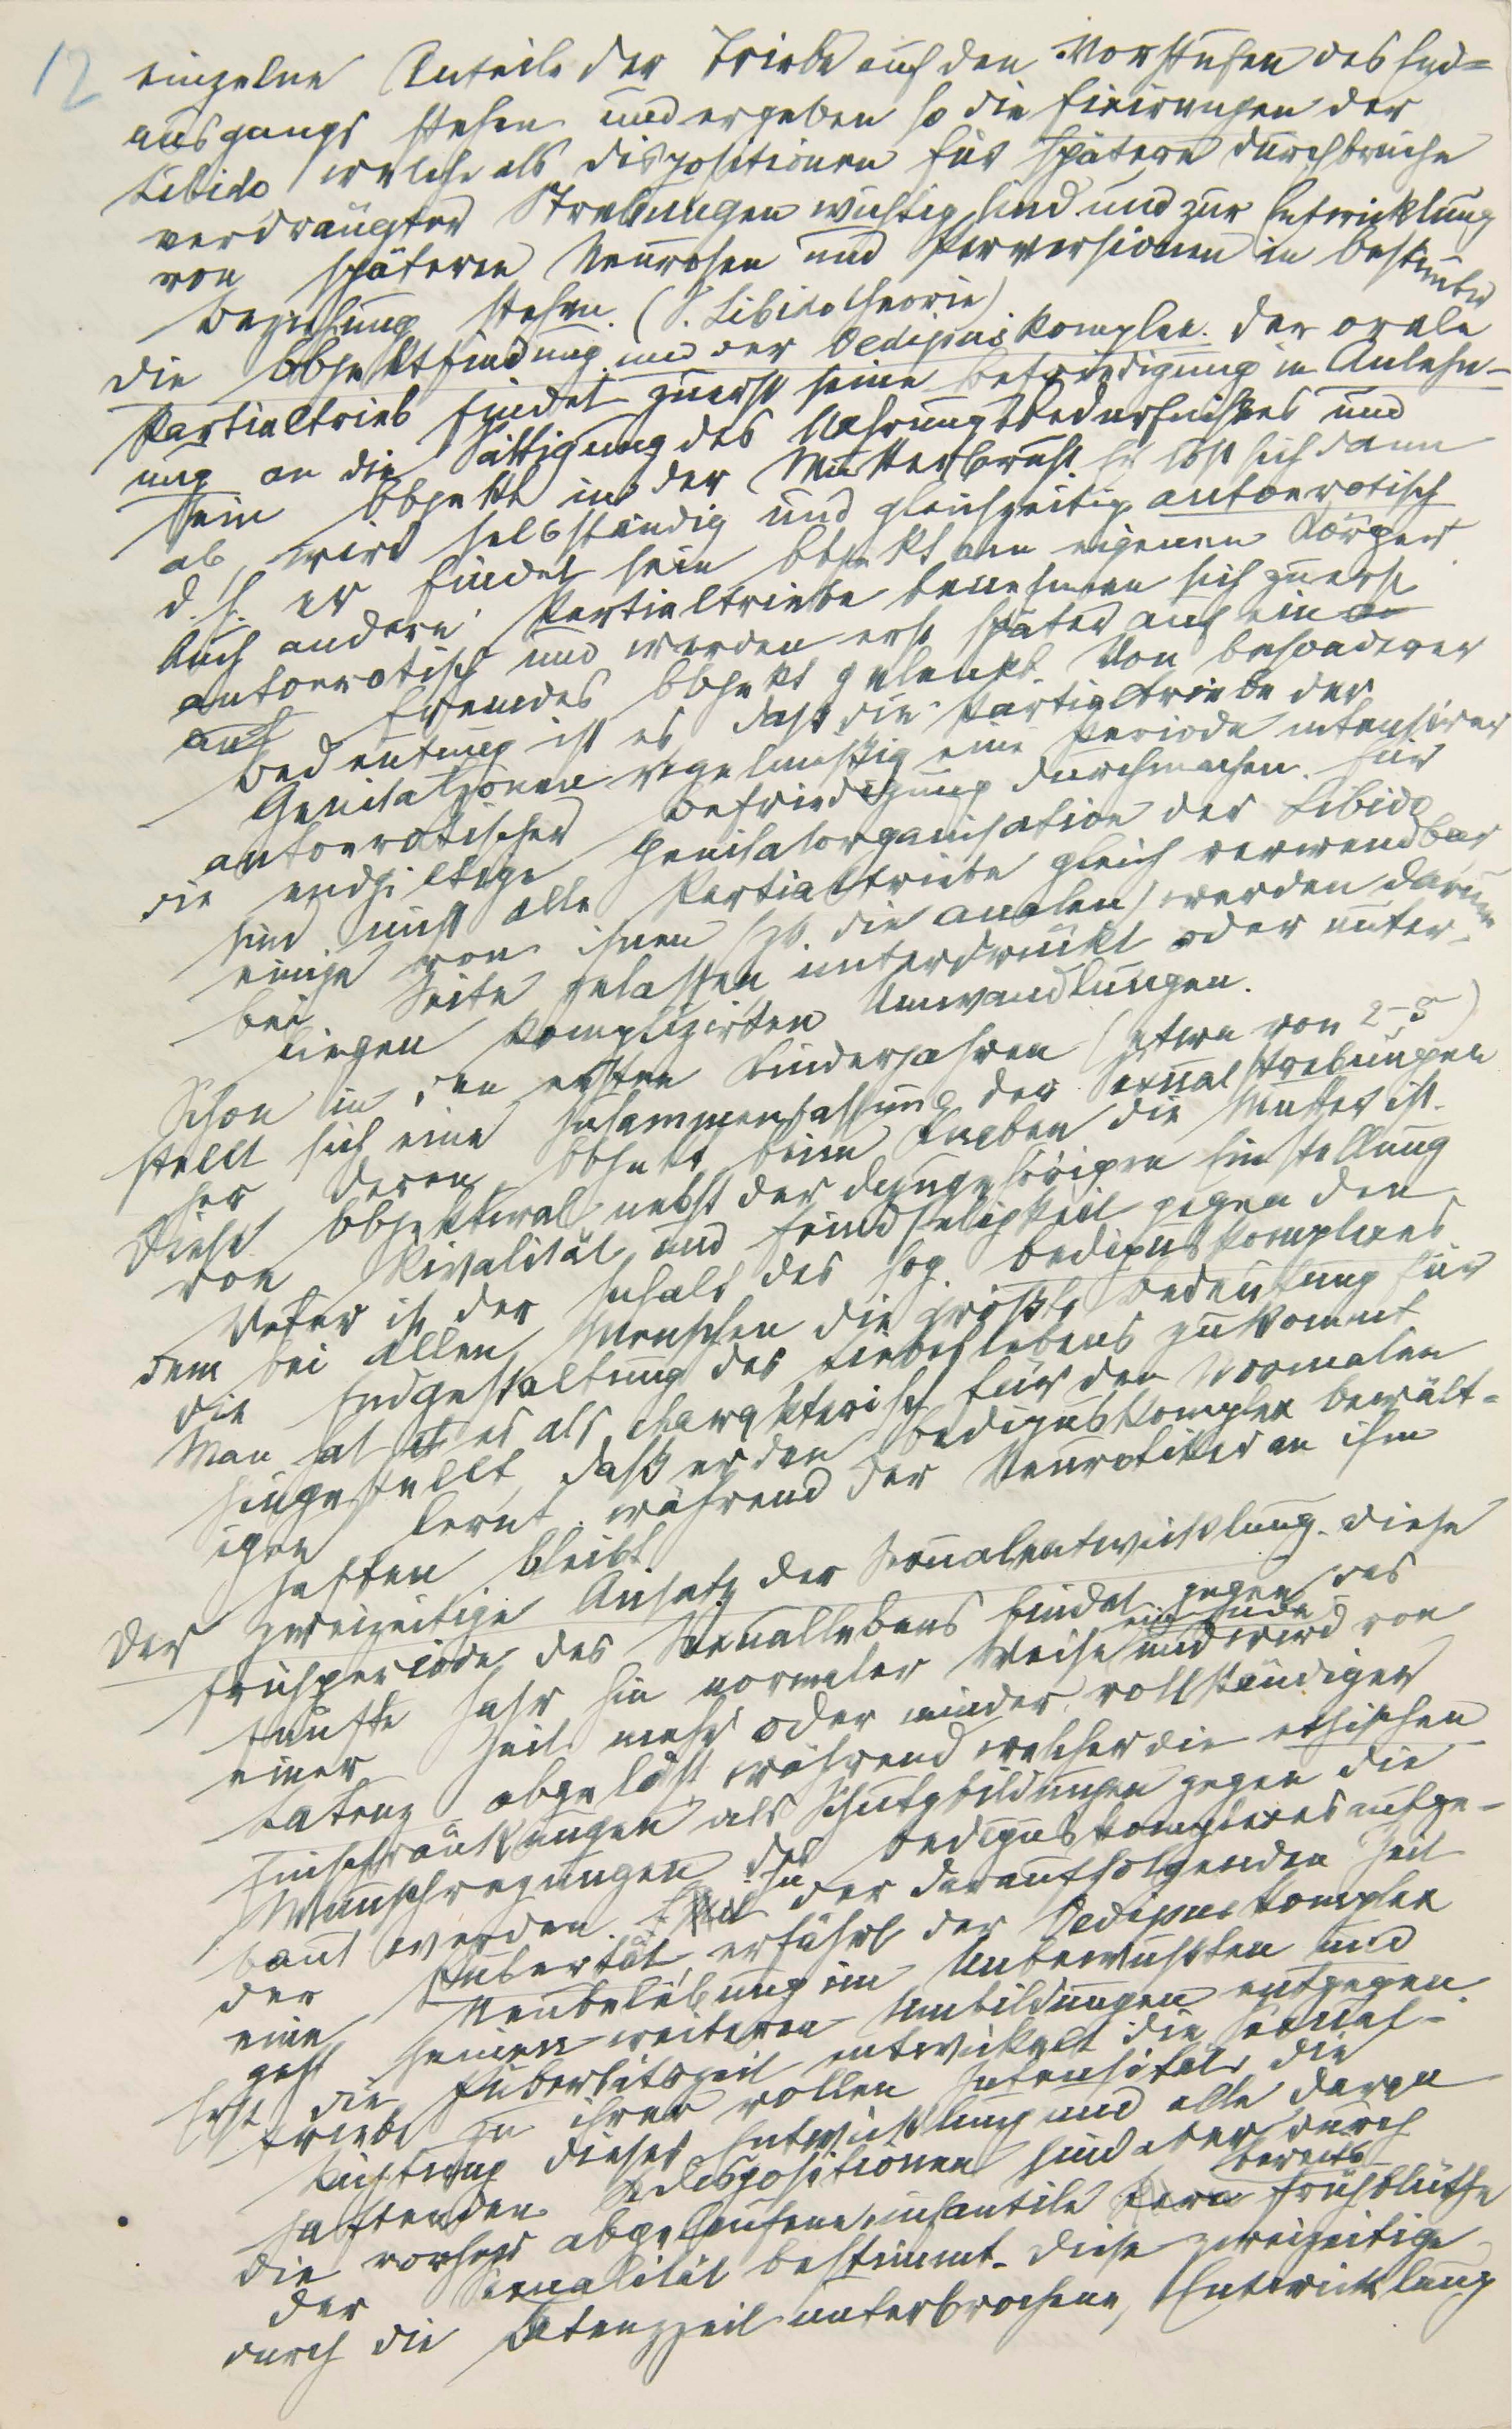 12
einzelne Anteile der Triebe auf den Vorstufen des End=
ausgangs stehen und ergeben so die Fixirungen der
Libido, welche als Dispositionen für spätere Durchbrüche
verdrängter Strebungen wichtig sind und zur Entwicklung
von späteren Neurosen und Perversionen in bestimmter
Beziehung stehen. (S. Libidotheorie)
Die Objektfindung und der Oedipuskomplex. Der orale
Partialtrieb findet zuerst seine Befriedigung in Anlehn-
ung an die Sättigung des Nahrungsbedürfnißes und
sein Objekt in der Mutterbrust. Er löst sich dann
ab, wird selbständig und gleichzeitig autoerotisch
d. h. er findet sein Objekt am eigenen Körper.
Auch andere Partialtriebe benehmen sich zuerst
autoerotisch und werden erst später auf ein
auf fremdes Objekt gelenkt. Von besonderer
Bedeutung ist es, daß die Partialtriebe der
Genitalzonen regelmäßig eine Periode intensiver
autoerotischer Befriedigung durchmachen. Für
die endgiltige Genitalorganisation der Libido
sind nicht alle Partialtriebe gleich verwendbar,
einige von ihnen (zb. die analen) werden darum
bei Seite gelassen, unterdrückt oder unter-
liegen komplizirten Umwandlungen.
Schon in den ersten Kinderjahren (etwa von 2–5)
stellt sich eine Zusammenfassung der Sexualstrebungen
her, deren Objekt beim Knaben die Mutter ist.
Diese Objektwal nebst der dazugehörigen Einstellung
von Rivalität und Feindseligkeit gegen den
Vater ist der Inhalt des sog. Oedipuskomplexes,
dem bei allen Menschen die größte Bedeutung für
die Endgestaltung des Liebeslebens zukommt.
Man hat es als charakteristisch für den Normalen
hingestellt, daß er den Oedipuskomplex bewält=
igen lernt, während der Neurotiker an ihm
haften bleibt.
Der zweizeitige Ansatz der Sexualentwicklung. Diese
Frühperiode des Sexuallebens findet gegen das
fünfte Jahr hin normaler Weise ein Ende und wird von
einer Zeit mehr oder minder vollständiger
Latenz abgelöst, während welcher die ethischen
Einschränkungen als Schutzbildungen gegen die
Wunschregungen des Oedipuskomplexes aufge-
baut werden. In der darauffolgenden Zeit
der Pubertät erfährt der Oedipuskomplex
eine Neubelebung im Unbewußten und
geht seinen weiteren Umbildungen entgegen.
Erst die Pubertätszeit entwickelt die Sexual-
triebe zu ihrer vollen Intensität; die
Richtung dieser Entwicklung und alle daran
haftenden Dispositionen sind aber durch
die vorher abgelaufene infantile bereits Frühblüthe
der Sexualität bestimmt. Diese zweizeitige
durch die Latenzzeit unterbrochene, Entwicklung